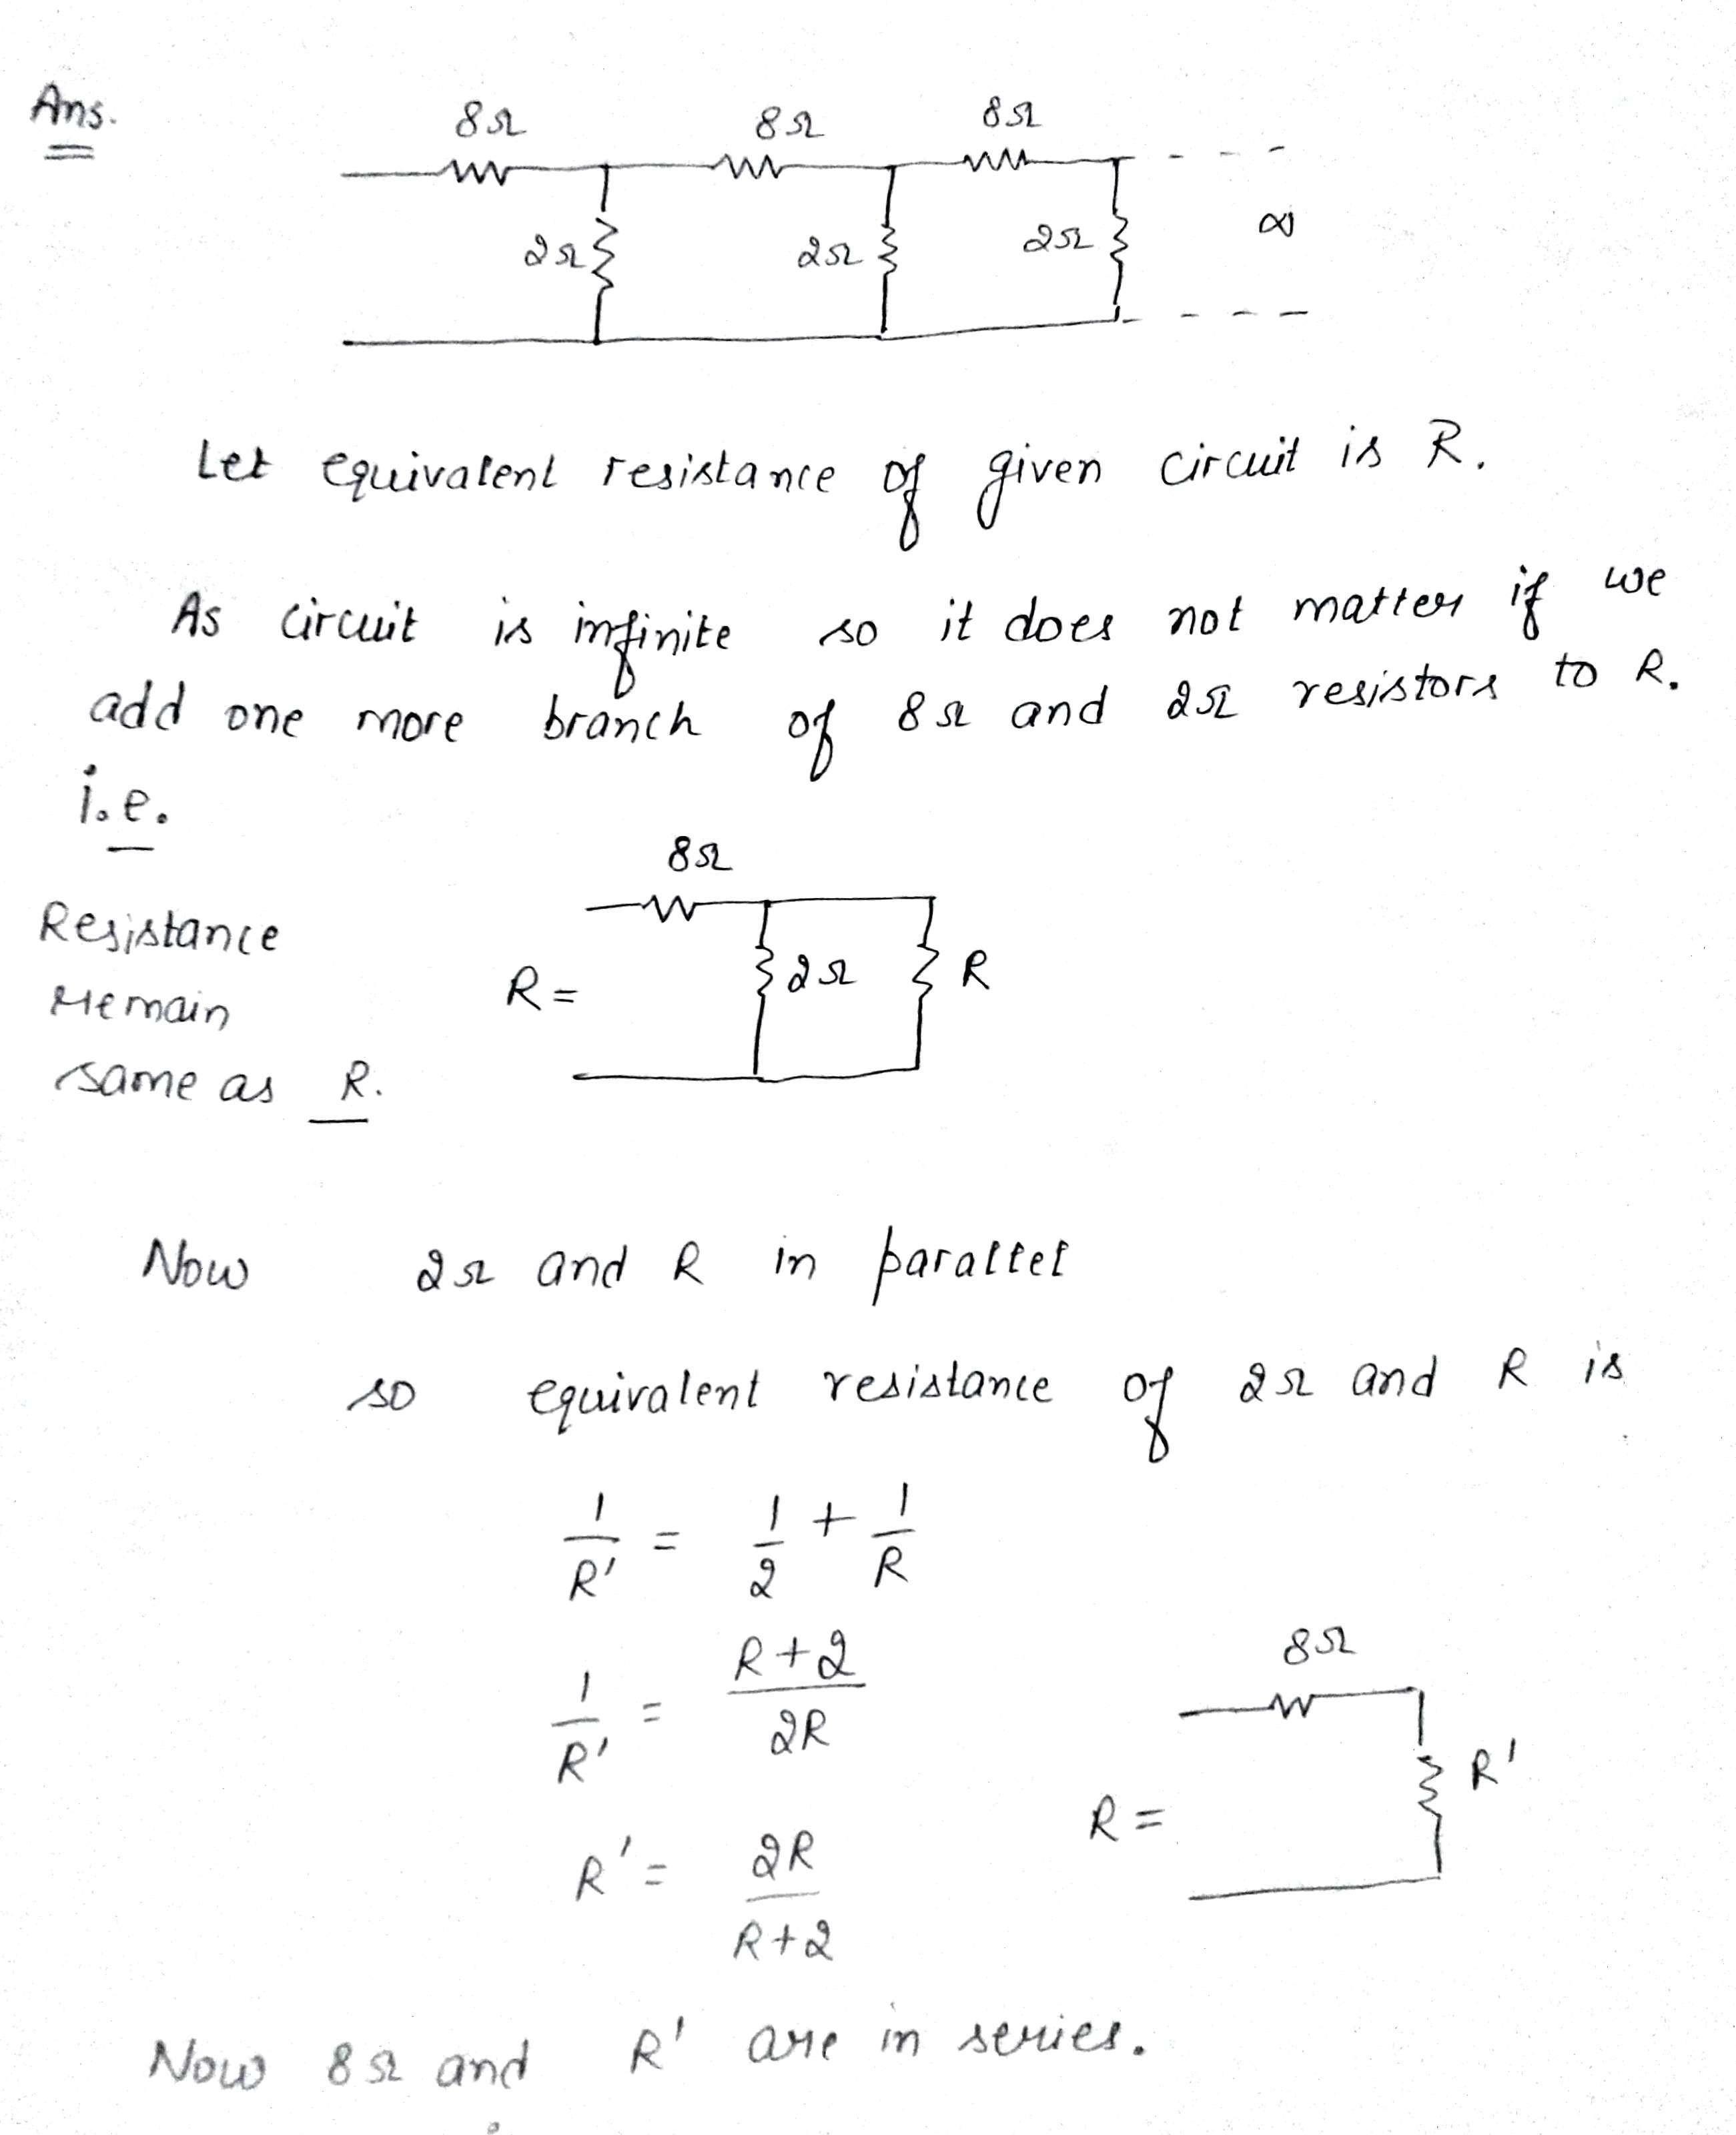 Ans.
8Ω 8Ω 8Ω
2Ω 2Ω 2Ω ∞
Let equivalent resistance of given circuit is R.
As circuit is infinite so it does not matter if we
add one more branch of 8Ω and 2Ω resistors to R.
i.e.
8Ω
Resistance
remain
same as R.
R = 2Ω R
Now 2Ω and R in parallel
so equivalent resistance of 2Ω and R is
1/R' = 1/2 + 1/R
1/R' = R+2/2R
8Ω
R = R'
R' = 2R/R+2
Now 8Ω and R' are in series.